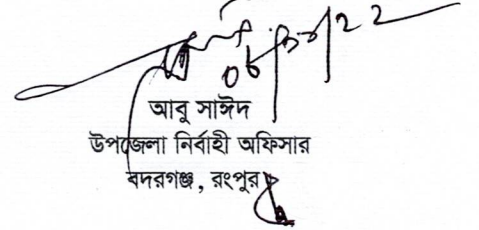 আবু সাঈদ
উপজেলা নির্বাহী অফিসার
বদরগঞ্জ, রংপুর